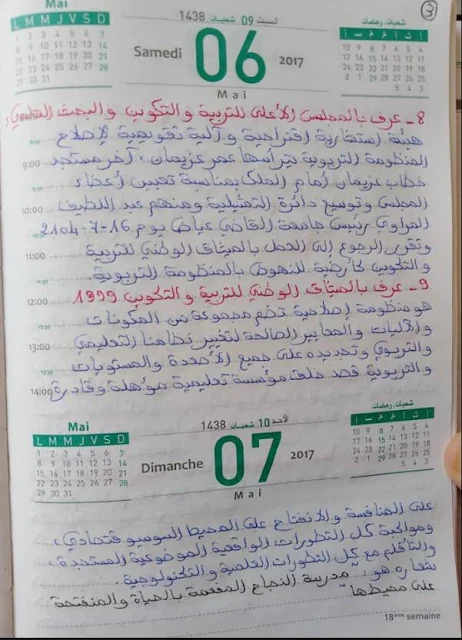 3
Mai
L M M J V S D
السبت 09 شعبان 1438
Samedi 06 2017
Mai
شعبان - رمضان
8 - عرف بالمجلس الأعلى للتربية والتكوين والبحث العلمي:
هيئة استشارية اقتراحية وآلية تقويمية لإصلاح
المنظومة التربوية يترأسها عمر عزيمان، آخر مستجد
9:00
خطاب عزيمان أمام الملك بمناسبة تعيين أعضاء
المجلس وتوسيع دائرة التمثيلية ومنهم عبد اللطيف
10:00
المراوي رئيس جامعة القاضي عياض يوم 16-7-2104
وتقرر الرجوع إلى العمل بالميثاق الوطني للتربية
11:00
والتكوين كأرضية للنهوض بالمنظومة التربوية
9 - عرف بالميثاق الوطني للتربية والتكوين 1999
12:00
هو منظومة إصلاحية تضم مجموعة من المكونات
والآليات والمعايير الصالحة لتغيير نظامنا التعليمي
13:00
والتربوي وتجديده على جميع الأصعدة والمستويات
والتربوية قصد خلق مؤسسة تعليمية مؤهلة وقادرة
14:00
Mai
L M M J V S D
1 2 3 4 5 6 7
8 9 10 11 12 13 14
15 16 17 18 19 20 21
22 23 24 25 26 27 28
29 30 31
الأحد 10 شعبان 1438
Dimanche 07 2017
Mai
شعبان - رمضان
على المنافسة والانفتاح على المحيط السوسيو قتصادي،
ومواكبة كل التطورات الواقعية الموضوعية المستجدة،
والتأقلم مع كل التطورات العلمية والتكنولوجية.
شعاره هو: "مدرسة النجاح المفعمة بالحياة والمنفتحة
على محيطها"
18ème semaine